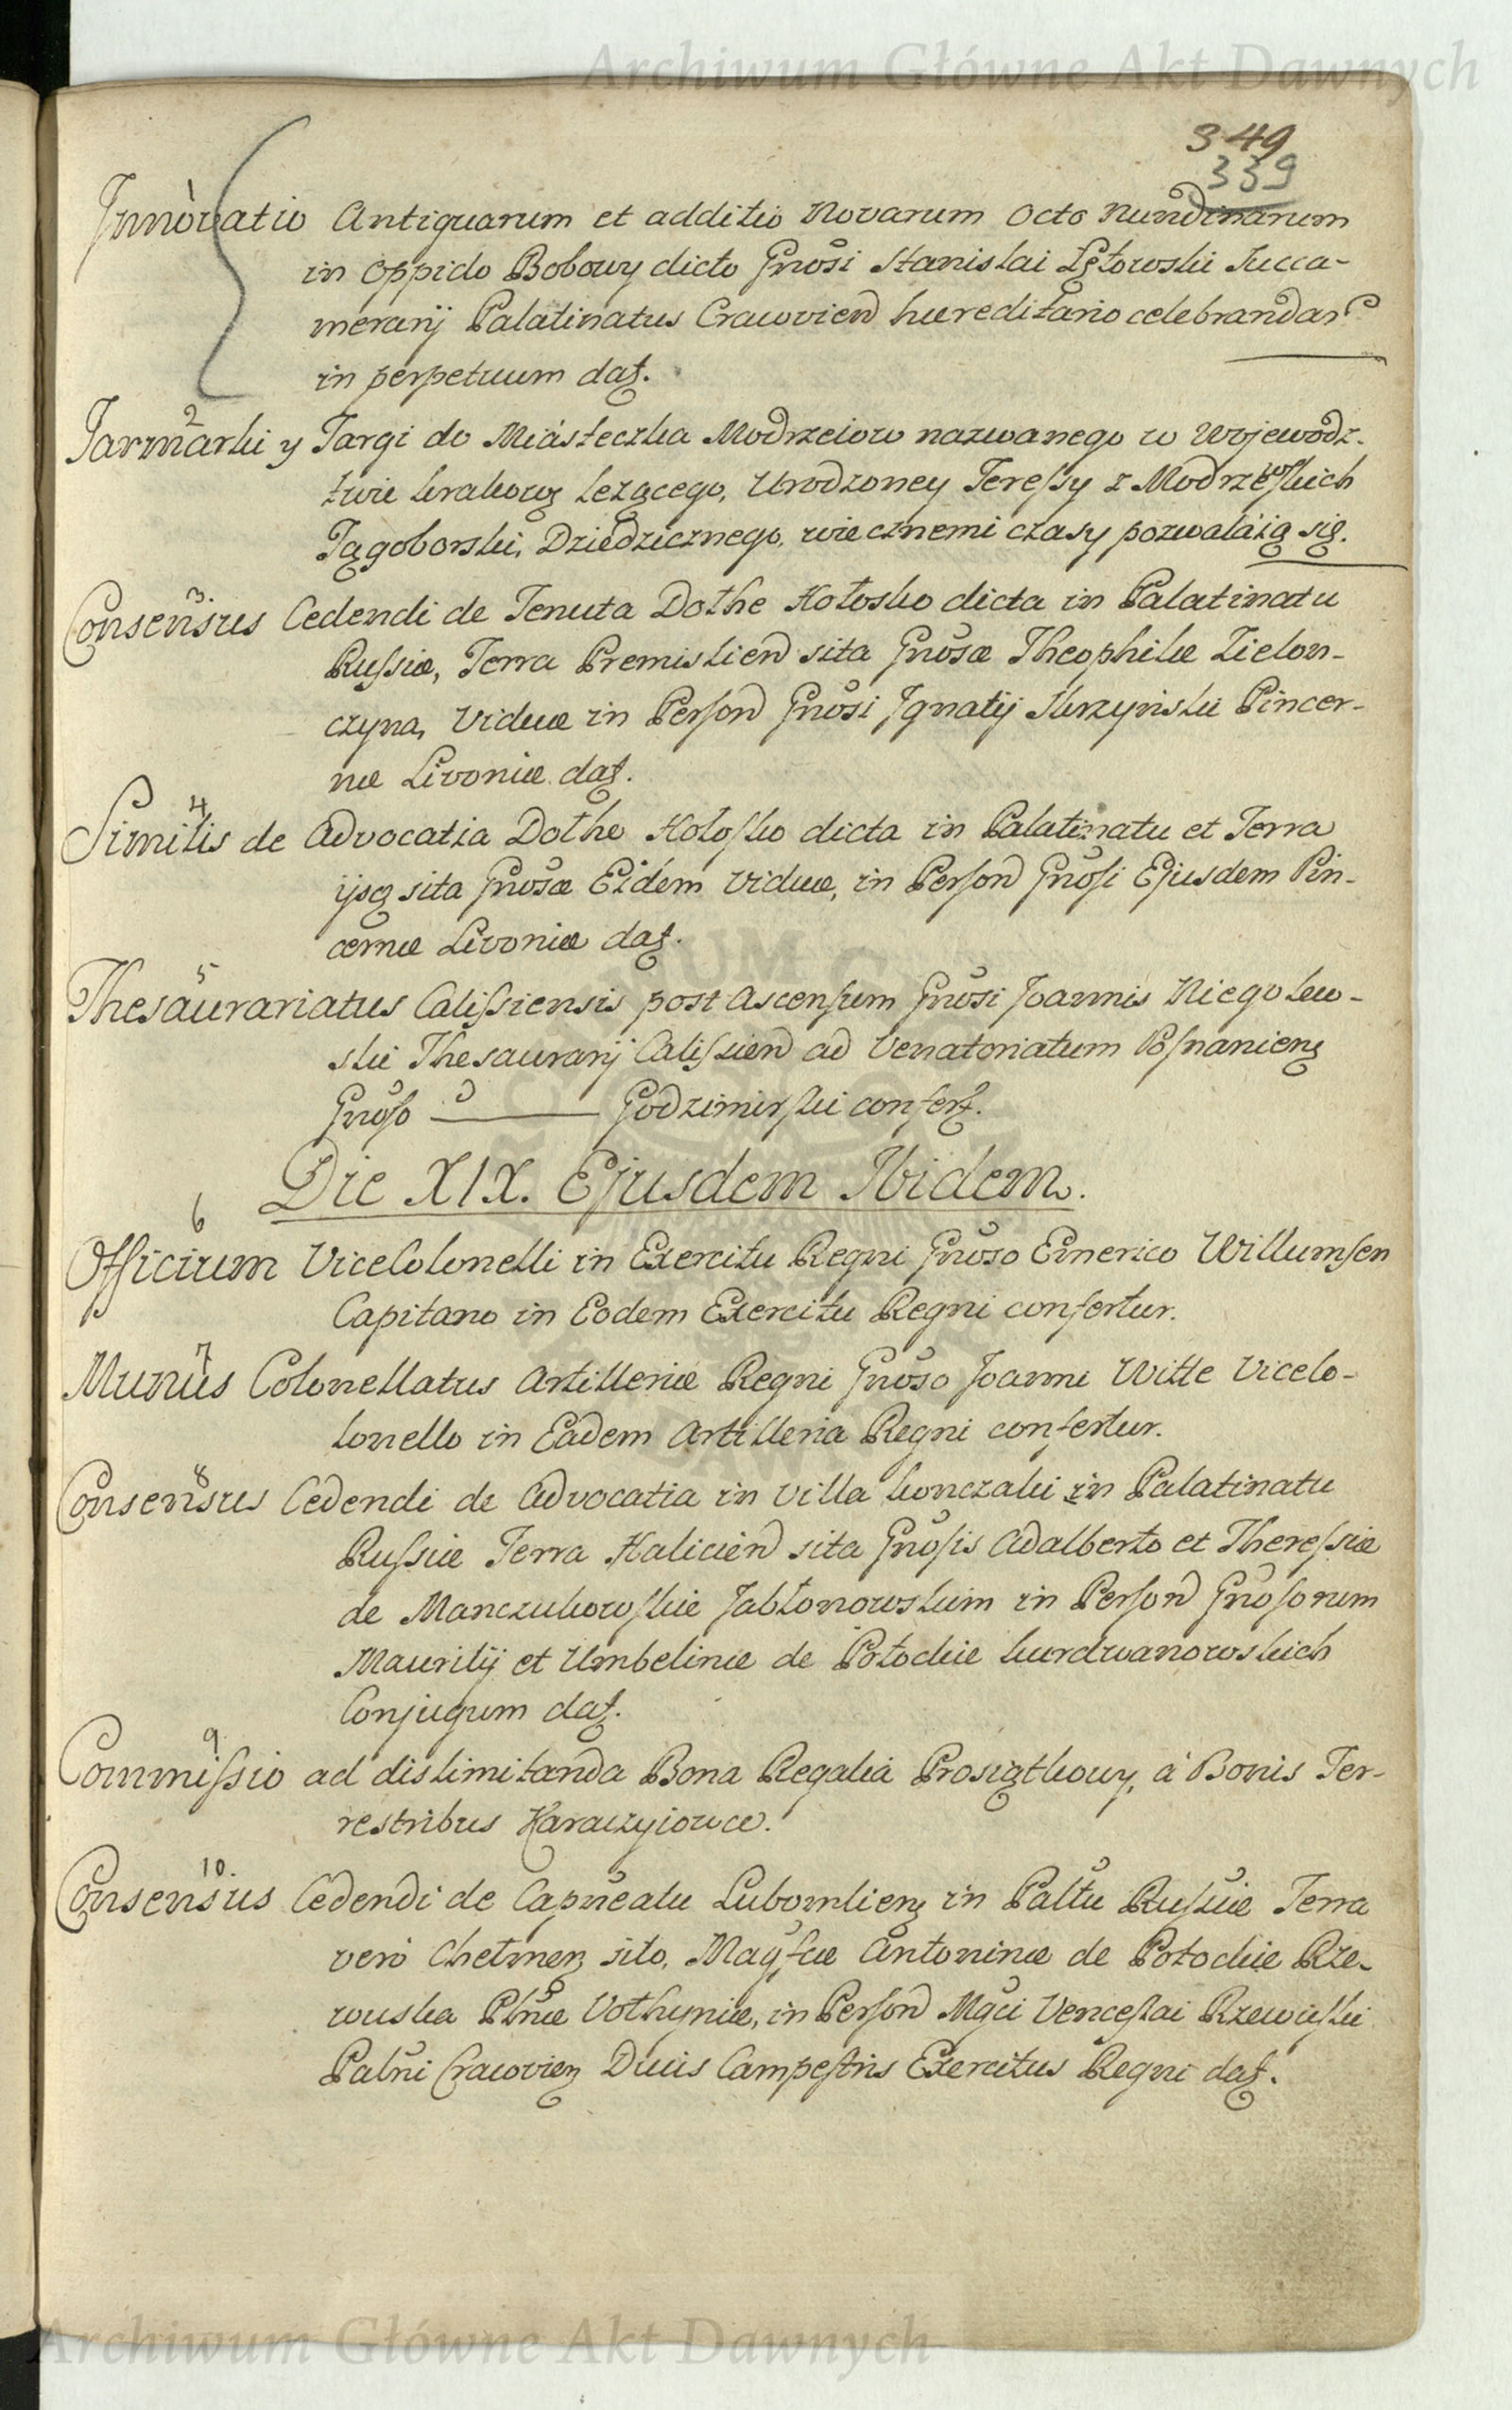 Archiwum Główne Akt Dawnych
349
339
1
Innovatio Antiquarum et additio Novarum Octo Nundinarum
in Oppido Bobowy dicto Gnosi Stanislai Łętowski Succa-
merarij Palatinatus Cracovien hæreditario celebrandar
in perpetuum dat.
2
Jarmarki y Targi do Miásteczka Modrzeiow nazwanego w Wojewodz-
twie krakow leżącego, Urodzoney Teressy z Modrzewskich
Jągoborski, Dziedzicznego, wiecznemi czasy pozwaláią się.
3.
Consensus Cedendi de Tenuta Dothe Hołosko dicta in Palatinatu
Russiæ, Terra Premislien sita Gnosæ Theophilæ Zielon-
czyna, Viduæ in Person Gnosi Ignatij Skrzyński Pincer-
næ Livoniæ dat.
4
Similis de Advocatia Dothe Hołosko dicta in Palatinatu et Terra
ijsq sita Gnosæ Eidem Viduæ, in Person Gnosi Ejusdem Pin-
cernæ Livoniæ dat.
5
Thesaurariatus Calissiensis post Ascensum Gnosi Joannis Niegolew-
ski Thesaurarij Calissien ad Venatoriatum Posnanien
Gnoso Godzimirski confert.
Die XIX. Ejusdem Ibidem.
6
Officium ViceColonelli in Exercitu Regni Gnoso Emerico Willumsen
Capitano in Eodem Exercitu Regni confertur.
7
Munus Colonellatus Artilleriæ Regni Gnoso Joanni Witte Vicelo-
lonello in Eadem Artilleria Regni confertur.
8
Consensus Cedendi de Advocatia in Villa konczaki in Palatinatu
Russiæ Terra Halicien sita Gnosis Adalberto et Theressiæ
de Manczukowskie Jabłonowskim in Person Gnosorum
Maurilij et Umbelinæ de Potockie kurdwanowskich
Conjugum dat.
9
Commissio ad dislimitanda Bona Regalia Prosiątkowy, á Bonis Ter-
restribus Karaczyiowce.
10.
Consensus Cedendi de Capneatu Lubomlien in Paltu Russiæ Terra
vero Chelmen sito, Magfcæ Antoninæ de Potockie Rze-
wuska Pltnæ Volhyniæ, in Person Mgci Venceslai Rzewuski
Palni Cracovien Ducis Campestris Exercitus Regni dat.
Archiwum Główne Akt Dawnych